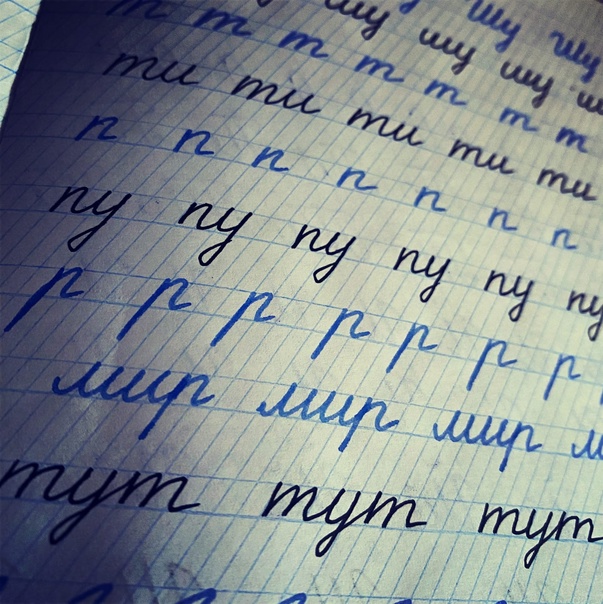 шу шу
шу шу шу
т т т т т т т
ти ти ти ти ти
п п п п п п п
пу пу пу пу пу пу
р р р р р р р
мир мир мир
тут тут тут